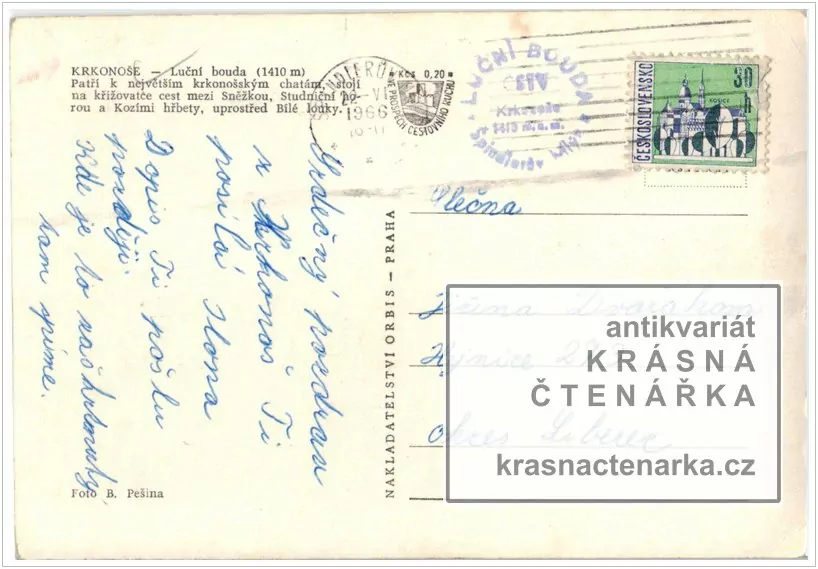 KRKONOŠE — Luční bouda (1410 m)
Patří k největším krkonošským chatám, stojí
na křižovatce cest mezi Sněžkou, Studniční ho-
rou a Kozími hřbety, uprostřed Bílé louky.
22.-VI
1966
Kčs 0,20
VE PROSPĚCH CESTOVNÍHO RUCHU
LUČNÍ BOUDA
STV
Krkonoše
1410 m. n. m.
Špindlerův Mlýn
ČESKOSLOVENSKO
30 h
KOŠICE
Srdečný pozdrav
z Krkonoš Ti
posílá Ilona
Dopis Ti pošlu
později.
Kde je to zaškrtnuty,
tam spíme.
Foto B. Pešina
NAKLADATELSTVÍ ORBIS — PRAHA
Slečna
Jiřina Dvořáková
Hejnice
Okres Liberec
antikvariát
KRÁSNÁ
ČTENÁŘKA
krasnactenarka.cz